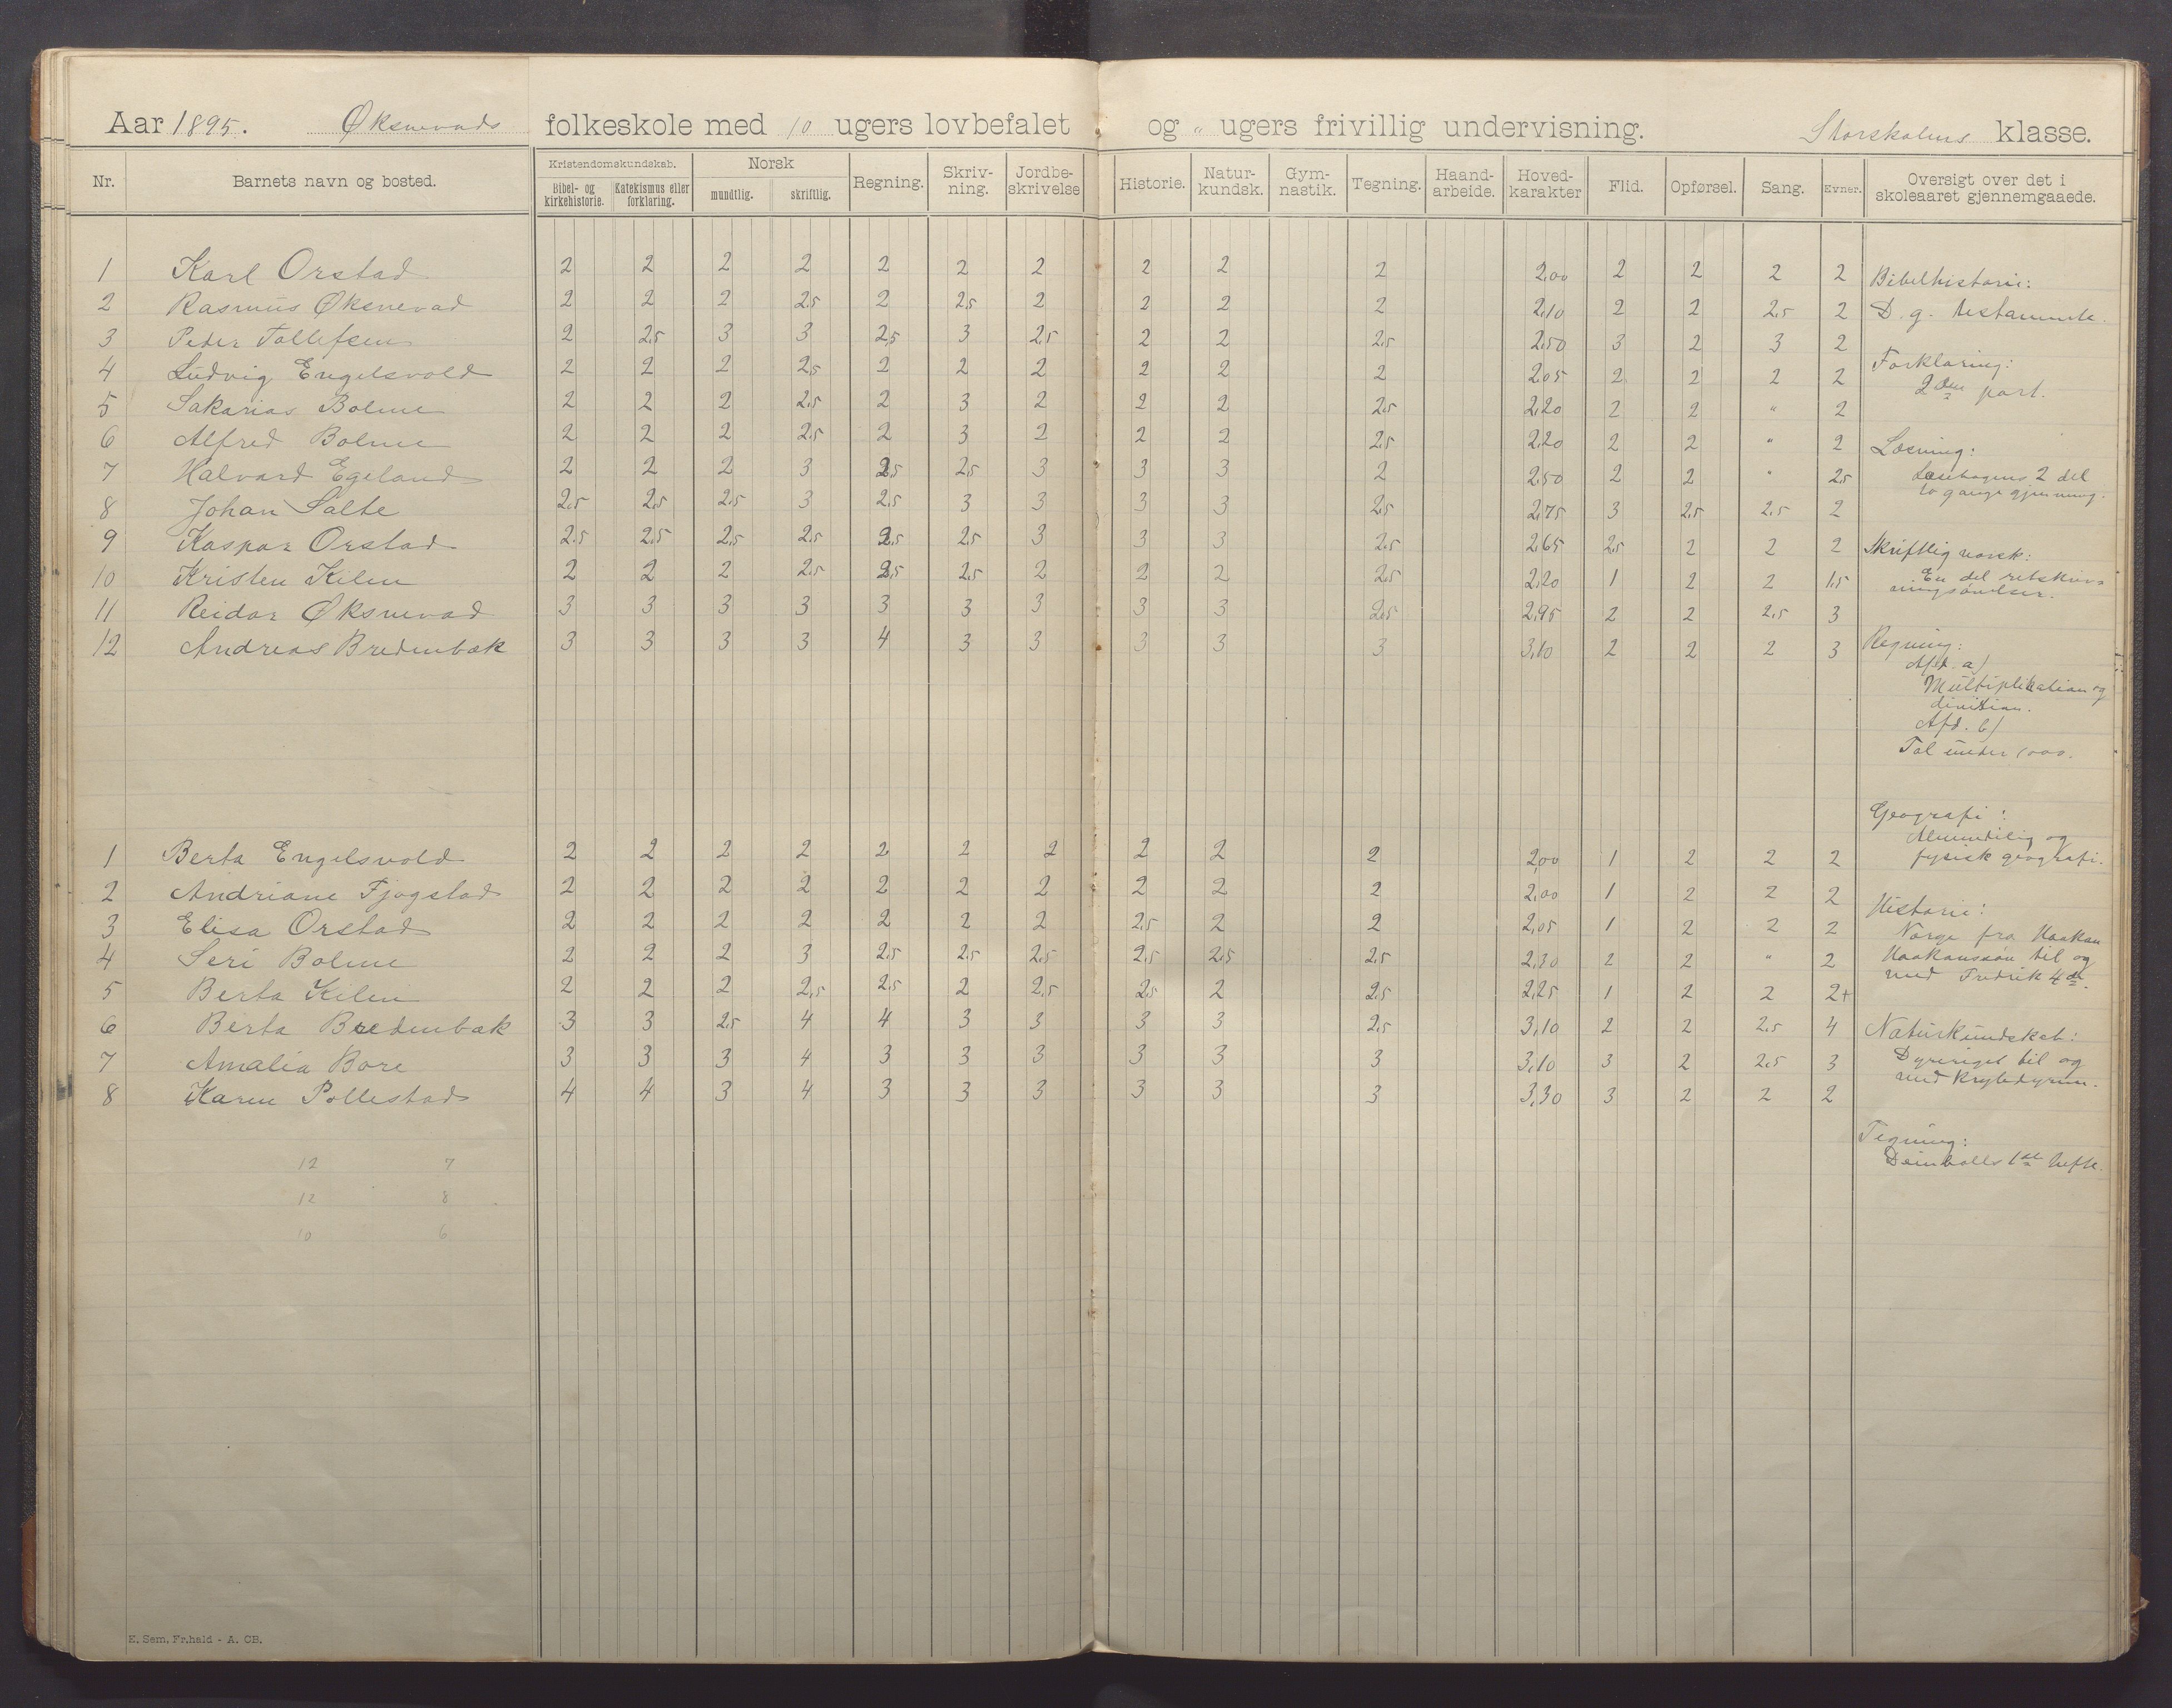 Aar 1895. Øksnevads folkeskole med 10 ugers lovbefalet og " ugers frivillig undervisning. Storskolens klasse.
Nr. Barnets navn og bosted. Kristendomskundskab. Bibel- og kirkehistorie. Katekismus eller forklaring. Norsk mundtlig. skriftlig. Regning. Skriv-ning. Jordbe-skrivelse Historie. Natur-kundsk. Gym-nastik. Tegning. Haand-arbeide. Hoved-karakter Flid. Opførsel. Sang. Evner. Oversigt over det i skoleaaret gjennemgaaede.
1 Karl Orstad 2 2 2 2 2 2 2 2 2 2 2,00 2 2 2 2
2 Rasmus Øksnevad 2 2 2 2,5 2 2,5 2 2 2 2 2,10 2 2 2,5 2
3 Peder Tollefsen 2 2,5 3 3 2,5 3 2,5 2 2 2,5 2,50 3 2 3 2
4 Ludvig Engelsvold 2 2 2 2,5 2 2 2 2 2 2 2,05 2 2 2 2
5 Sakarias Bolme 2 2 2 2,5 2 3 2 2 2 2,5 2,20 2 2 " 2
6 Alfred Bolme 2 2 2 2,5 2 3 2 2 2 2,5 2,20 2 2 " 2
7 Halvard Egeland 2 2 2 3 2,5 2,5 3 3 3 2 2,50 2 2 " 2,5
8 Johan Salte 2,5 2,5 2,5 3 2,5 3 3 3 3 2,5 2,75 3 2,5 2,5 2
9 Kaspar Orstad 2,5 2,5 2,5 2,5 2,5 2,5 3 3 3 2,5 2,65 2,5 2 2 2
10 Kristen Kilen 2 2 2 2,5 2,5 2,5 2 2 2 2,5 2,20 1 2 2 1,5
11 Reidar Øksnevad 3 3 3 3 3 3 3 3 3 2,5 2,95 2 2 2,5 3
12 Andreas Bredenbæk 3 3 3 3 4 3 3 3 3 3 3,10 2 2 2 3
1 Berta Engelsvold 2 2 2 2 2 2 2 2 2 2 2,00 1 2 2 2
2 Andriane Fjogstad 2 2 2 2 2 2 2 2 2 2 2,00 1 2 2 2
3 Elisa Orstad 2 2 2 2 2 2 2 2,5 2 2 2,05 1 2 2 2
4 Seri Bolme 2 2 2 3 2,5 2,5 2,5 2,5 2,5 2,5 2,30 2 2 " 2
5 Berta Kilen 2 2 2 2,5 2,5 2 2,5 2,5 2 2,5 2,25 1 2 2 2+
6 Berta Bredenbæk 3 3 2,5 4 4 3 3 3 3 2,5 3,10 2 2 2,5 4
7 Amalia Bore 3 3 3 4 3 3 3 3 3 3 3,10 3 2 2,5 3
8 Karen Pollestad 4 4 3 4 3 3 3 3 3 3 3,30 3 2 2 2
12 7
12 8
10 6
Bibelhistorie:
D. g. testamente.
Forklaring:
2den part.
Læsning:
Læsebogens 2 del
to gange gjennemg.
Skriftlig norsk:
En del retskriv-
ningsøvelser.
Regning:
Afd. a)
Multiplikation og
division.
Afd. b)
Tal under 1000.
Geografi:
Almindelig og
fysisk geografi.
Historie:
Norge fra Haakon
Haakonssøn til og
med Fredrik 4de.
Naturkundskab:
Dyreriget til og
med krybdyrene.
Tegning:
1ste hefte.
E. Sem, Fr.hald - A. CB.